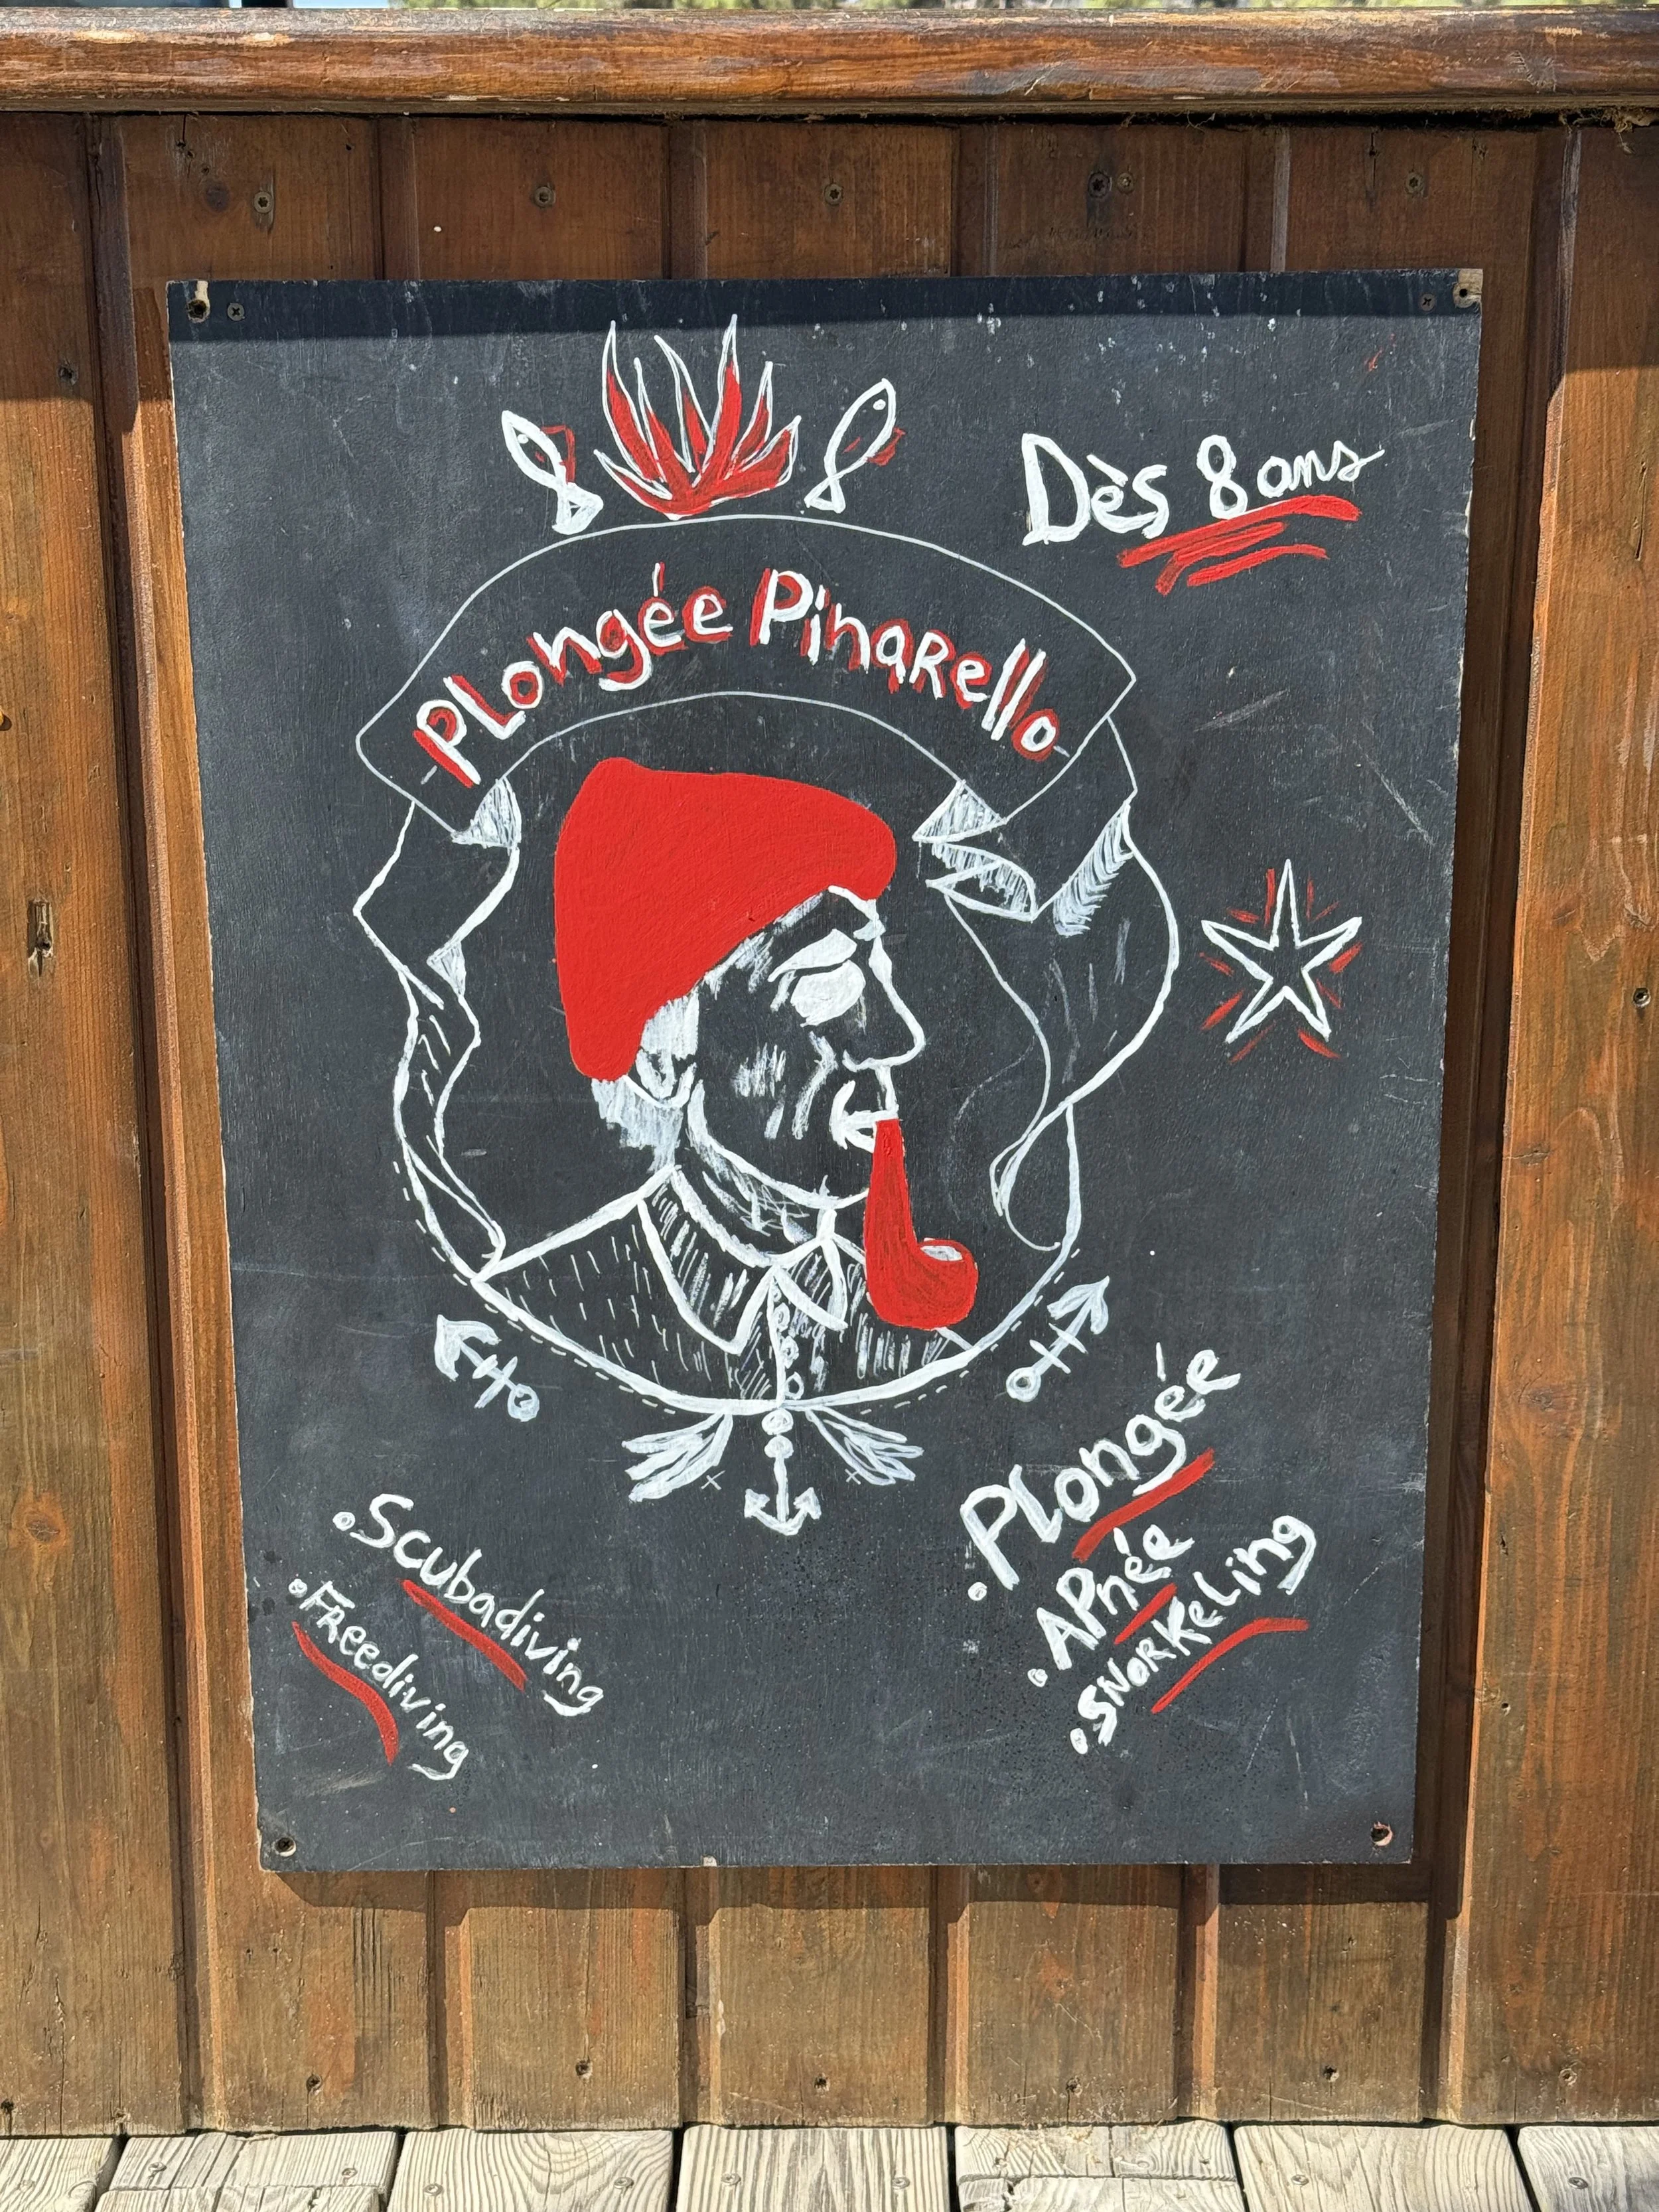 Dès 8 ans
PLongée PinaRello
. Plongée
. APnée
. SNoRKeLing
. Scubadiving
. FReediving